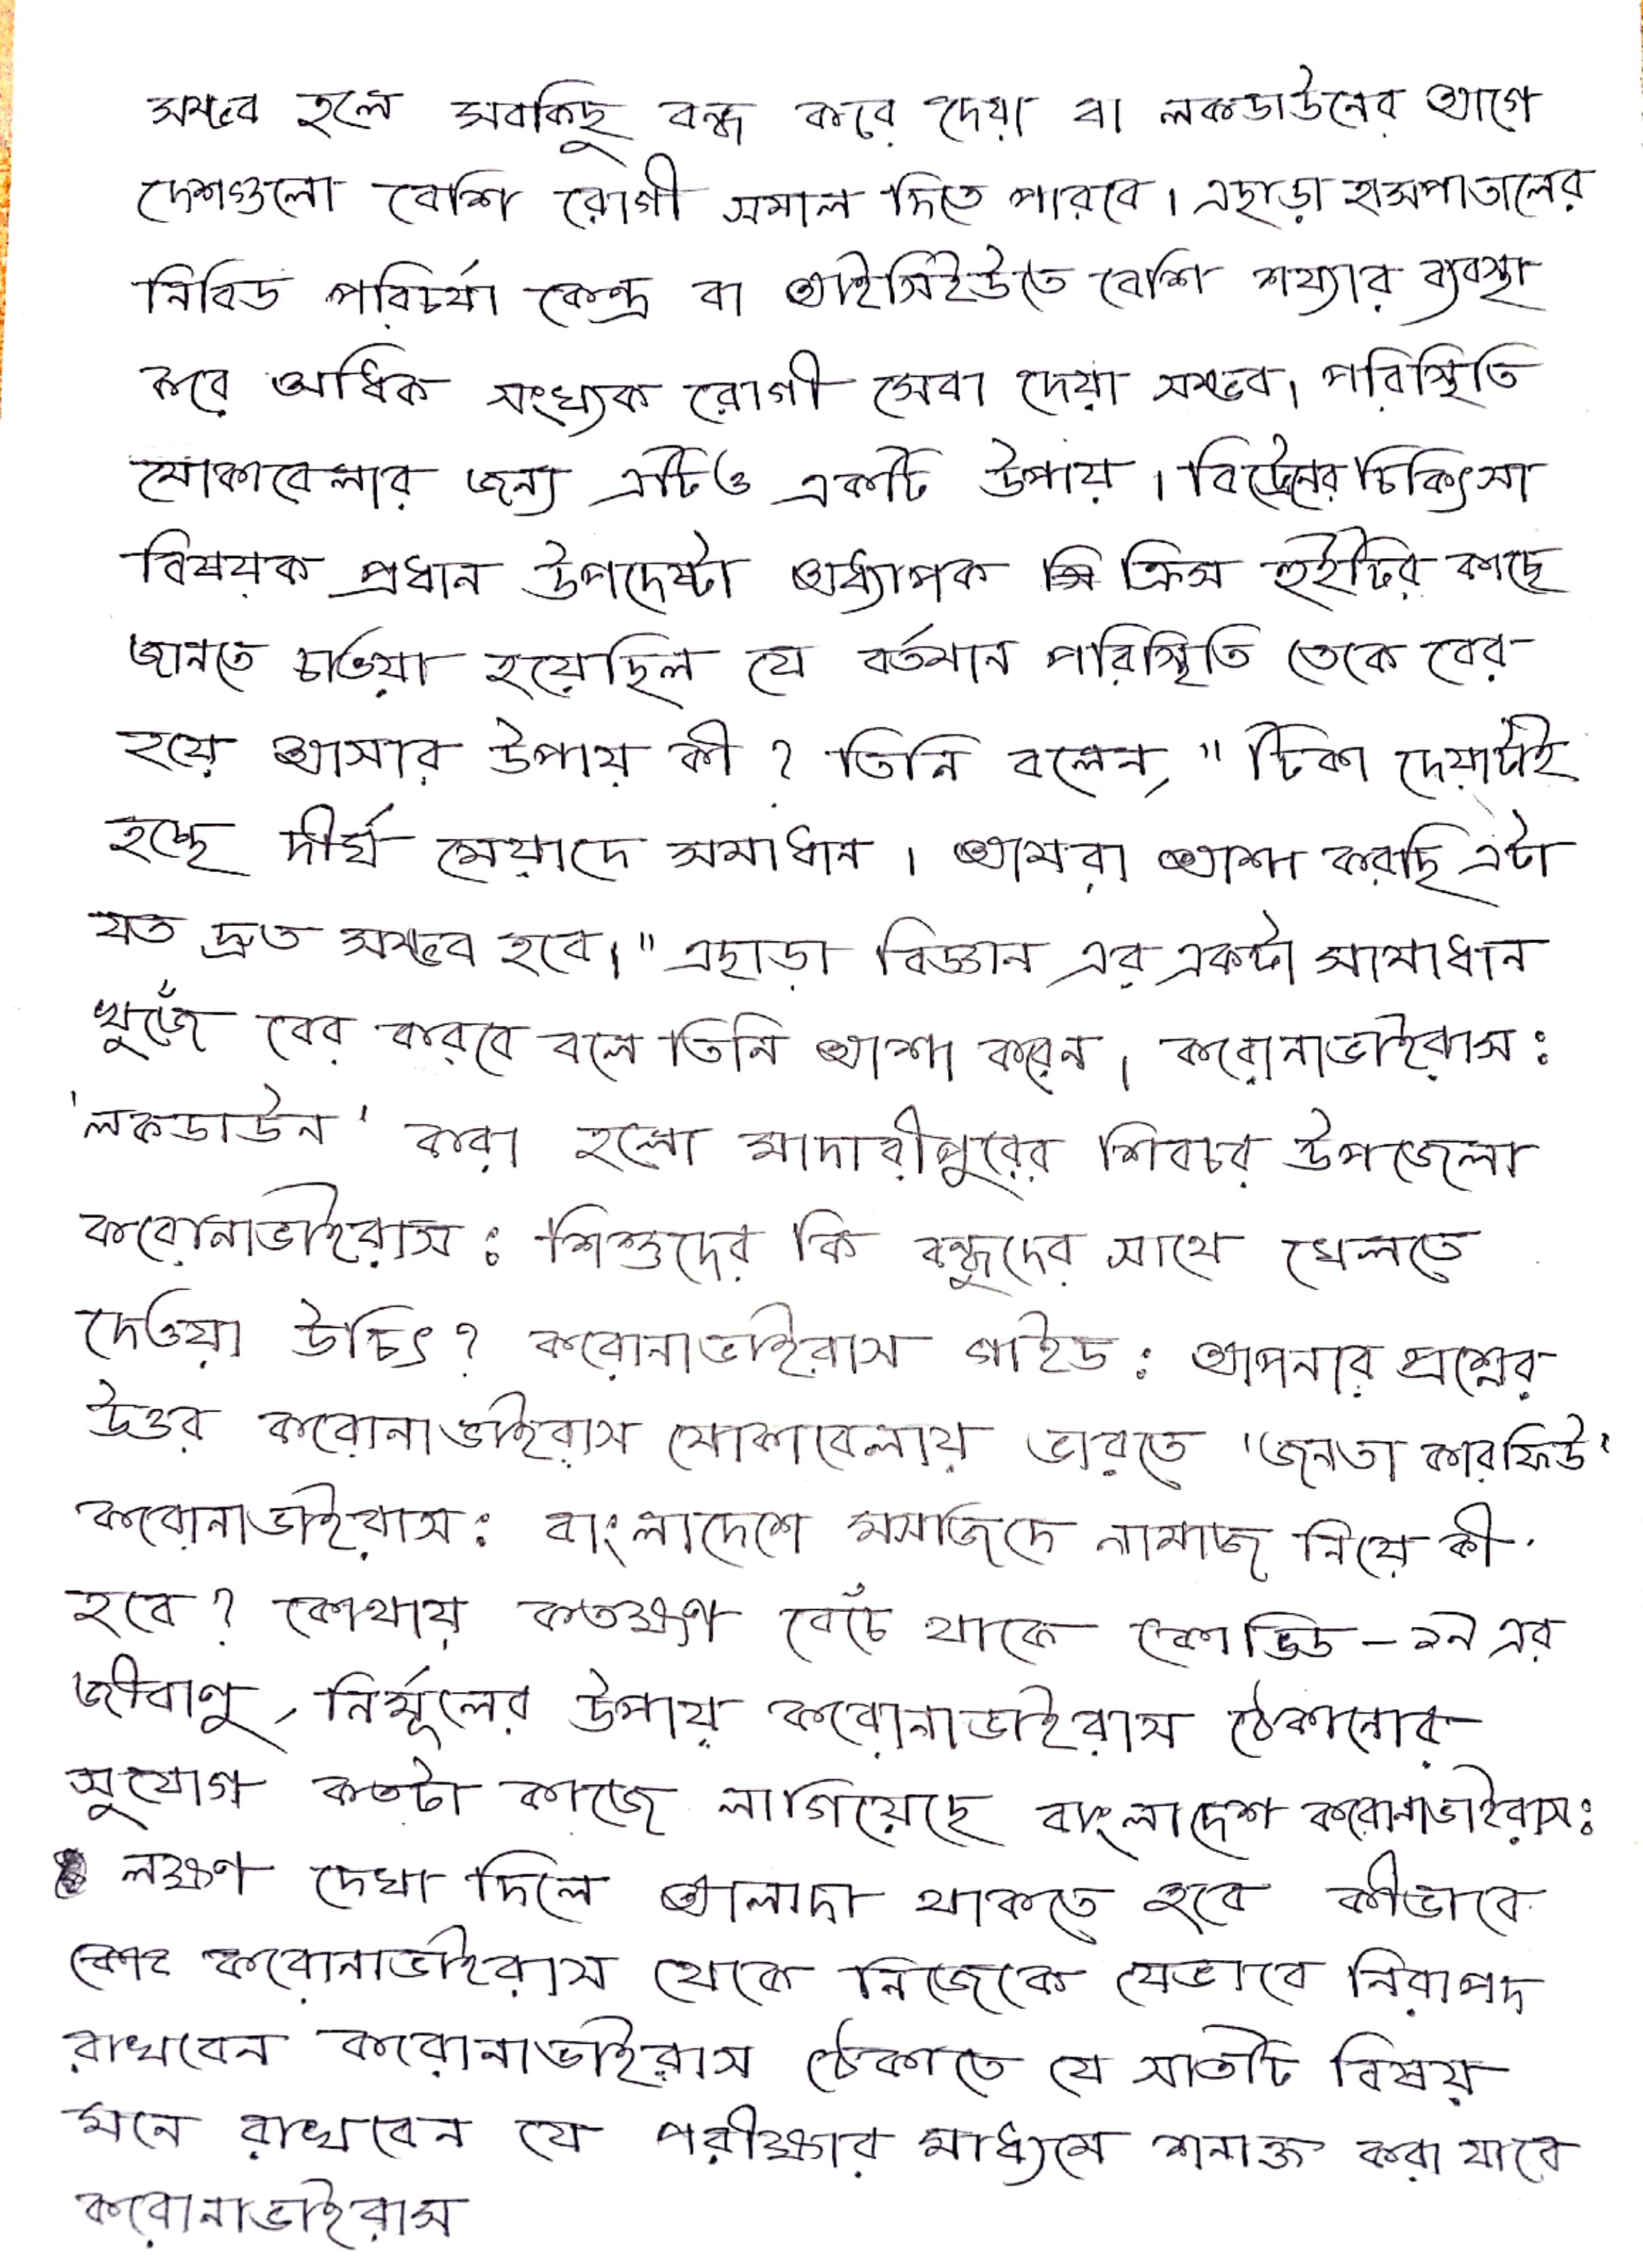 সম্ভব হলে সবকিছু বন্ধ করে দেয়া বা লকডাউনের আগে
দেশগুলো বেশি রোগী সমাল দিতে পারবে। এছাড়া হাসপাতালের
নিবিড পরিচর্যা কেন্দ্র বা আইসিইউতে বেশি শয্যার ব্যবস্থা
করে অধিক সংখ্যক রোগী সেবা দেয়া সম্ভব। পরিস্থিতি
মোকাবেলার জন্য এটিও একটি উপায়। বিটেনের চিকিৎসা
বিষয়ক প্রধান উপদেষ্টা অধ্যাপক ক্রিস হুইটির কাছে
জানতে চাওয়া হয়েছিল যে বর্তমান পরিস্থিতি তেকে বের
হয়ে আসার উপায় কী? তিনি বলেন, "টিকা দেয়াটাই
হচ্ছে দীর্ঘ মেয়াদে সমাধান। আমরা আশা করছি এটা
যত দ্রুত সম্ভব হবে।" এছাড়া বিজ্ঞান এর একটা সামাধান
খুজেঁ বের করবে বলে তিনি আশা করেন। করোনাভাইরাস:
'লকডাউন' করা হলো মাদারীপুরের শিবচর উপজেলা
করোনাভাইরাস: শিশুদের কি বন্ধুদের সাথে খেলতে
দেওয়া উচিৎ? করোনাভাইরাস গাইড: আপনার প্রশ্নের
উত্তর করোনাভাইরাস মোকাবেলায় ভারতে 'জনতা কারফিউ'
করোনাভাইরাস: বাংলাদেশে মসজিদে নামাজ নিয়ে কী
হবে? কোথায় কতক্ষণ বেঁচে থাকে কোভিড-১৯ এর
জীবাণু, নির্মূলের উপায় করোনাভাইরাস ঠেকানোর
সুযোগ কতটা কাজে লাগিয়েছে বাংলাদেশ করোনাভাইরাস:
লক্ষণ দেখা দিলে আলাদা থাকতে হবে কীভাবে
করোনাভাইরাস থেকে নিজেকে যেভাবে নিরাপদ
রাখবেন করোনাভাইরাস ঠেকাতে যে সাতটি বিষয়
মনে রাখবেন যে পরীক্ষার মাধ্যমে শনাক্ত করা যাবে
করোনাভাইরাস